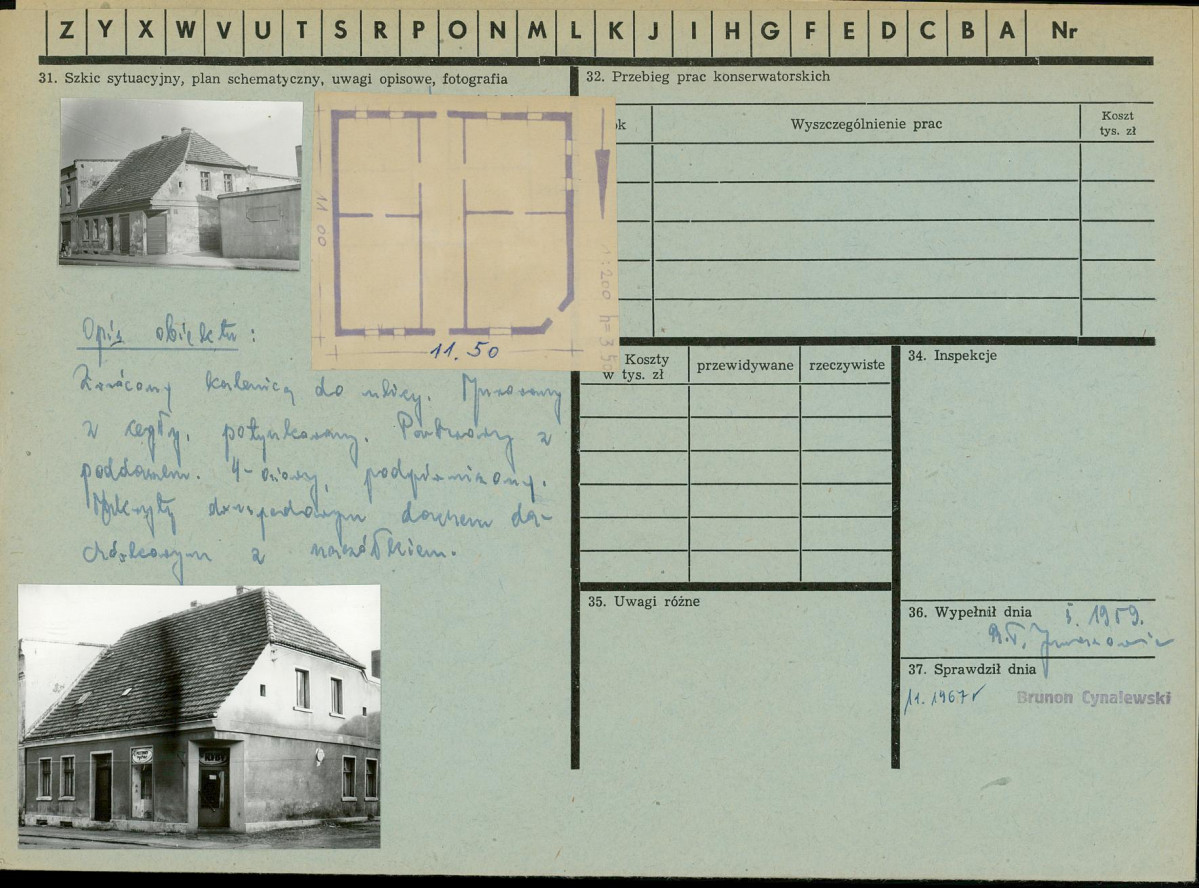 Z Y X W V U T S R P O N M L K J I H G F E D C B A Nr
31. Szkic sytuacyjny, plan schematyczny, uwagi opisowe, fotografia
11 00
11.50
1:200 h=3.50
Opis obiektu:
Zwrócony kalenicą do ulicy. Murowany
z cegły, potynkowany. Parterowy z
poddaszem. 4-osiowy, podpiwniczony.
Nakryty dwuspadowym dachem da-
chówkowym z naczółkiem.
32. Przebieg prac konserwatorskich
ok
Wyszczególnienie prac
Koszt
tys. zł
Koszty
w tys. zł
przewidywane
rzeczywiste
34. Inspekcje
35. Uwagi różne
36. Wypełnił dnia
1959.
37. Sprawdził dnia
11.1967r
Brunon Cynalewski